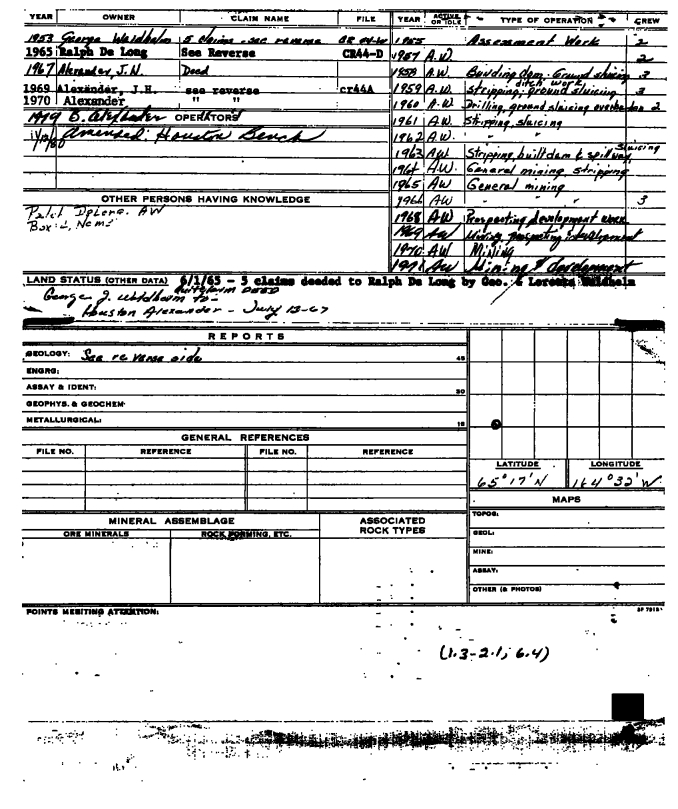 YEAR OWNER CLAIM NAME FILE
1953 George Waldhelm 5 claims - see reverse
1965 Ralph De Long See Reverse CR44-D
1967 Alexander, J.H. Deed
1969 Alexander, J.H. see reverse cr44A
1970 Alexander " "
1979 OPERATORS
Amended: Houston Bench
OTHER PERSONS HAVING KNOWLEDGE
Ralph DeLong, AW
Box Nome
YEAR ACTIVE OR IDLE TYPE OF OPERATION CREW
1955 Assessment Work 2
1957 A.W. 2
1958 A.W. Building dam. Ground sluicing 3
ditch work,
1959 A.W. Stripping, ground sluicing 3
1960 A.W Drilling, ground sluicing overburden 2
1961 A.W. Stripping, sluicing
1962 A.W. " "
sluicing
1963 AW Stripping, built dam & spillway,
1964 AW. General mining, stripping
1965 AW General mining
1966 AW " " 3
1968 AW Prospecting development work
1969 AW Mining prospecting & development
1970 AW Mining
AW Mining & development
LAND STATUS (OTHER DATA) 6/1/65 - 5 claims deeded to Ralph De Long by Geo. & Lorenta Waldhelm
Quitclaim DEED
George J. Waldhelm to -
Houston Alexander - July 13-67
REPORTS
GEOLOGY: See reverse side 45
ENGRG:
ASSAY & IDENT: 30
GEOPHYS. & GEOCHEM
METALLURGICAL: 15
GENERAL REFERENCES
FILE NO. REFERENCE FILE NO. REFERENCE
LATITUDE LONGITUDE
65°17'N 164°32'W
MAPS
TOPOG:
GEOL:
MINE:
ASSAY:
OTHER (& PHOTOS)
MINERAL ASSEMBLAGE ASSOCIATED ROCK TYPES
ORE MINERALS ROCK FORMING, ETC.
POINTS MERITING ATTENTION:
(1.3-2.1; 6.4)